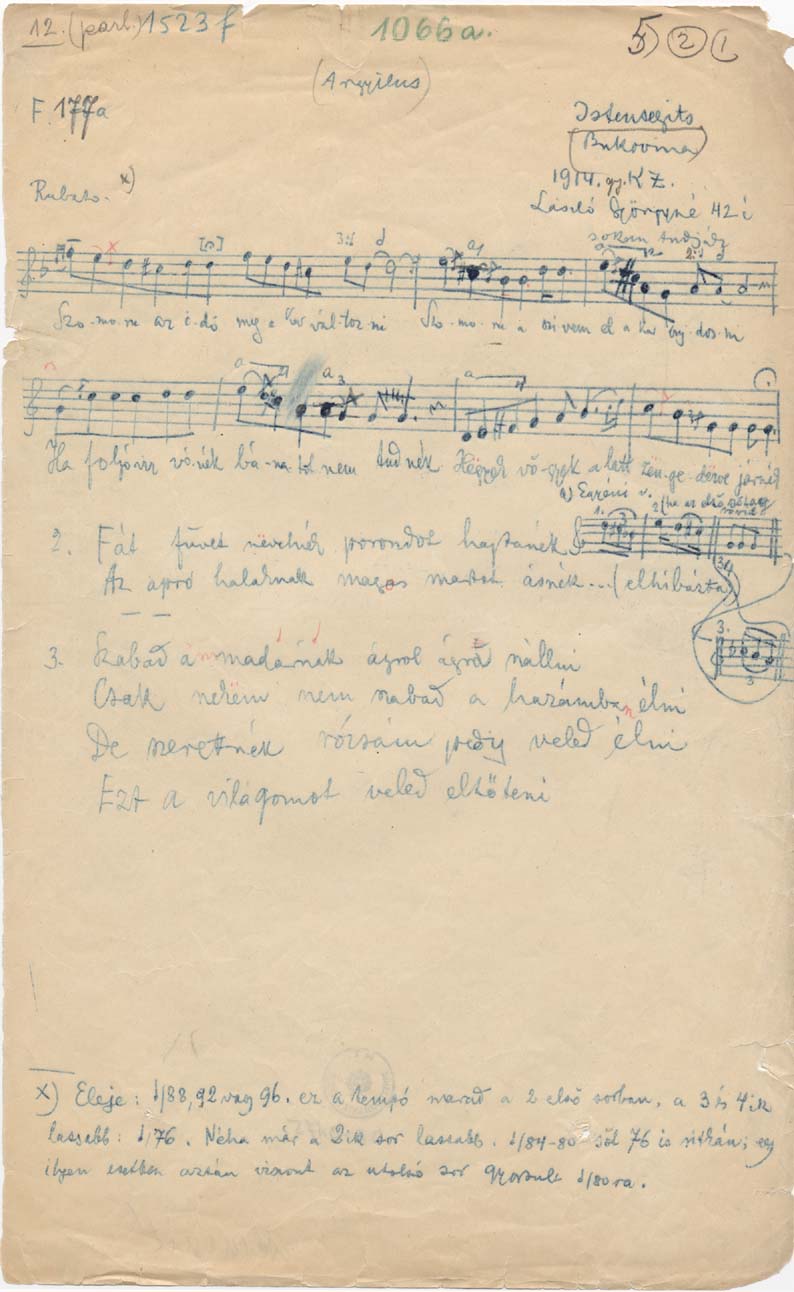 12. (parl.) 1523 f 1066a. 5) 2 1
(Argyilus)
F. 177a
Istensegits
(Bukovina)
1914. gy. K Z.
László Györgyné 42 é
Rubato. x)
sokan tudják
Szo-mo-rú az i-dő meg a-kar vál-toz-ni Szo-mo-rú a szivem el a-kar búj-dos-ni
Ha foljóviz vónék bá-na-tot nem tudnék Hegyek vő-gyek alatt zën-ge-dëzve járnék
a) Egyéni v.
1. 2. (ha az első szótag rövid)
2. Fát füvet nëvelnék porondot hajtanék
Az apró halaknak magos martot ásnék... (elhibázta)
3.
3. Szabad a madárnak ágrol ágra szállni
Csak nekëm nem szabad a hazámban élni
De szeretnék rózsám pedig veled élni
Ezt a világomot veled eltőteni
x) Eleje: 88, 92 vagy 96. ez a tempó marad a 2 első sorban, a 3 és 4ik
lassabb: 76. Néha már a 2ik sor lassabb. 84-80 sőt 76 is ritkán; egy
ilyen esetben aztán viszont az utolsó sor gyorsult 80ra.